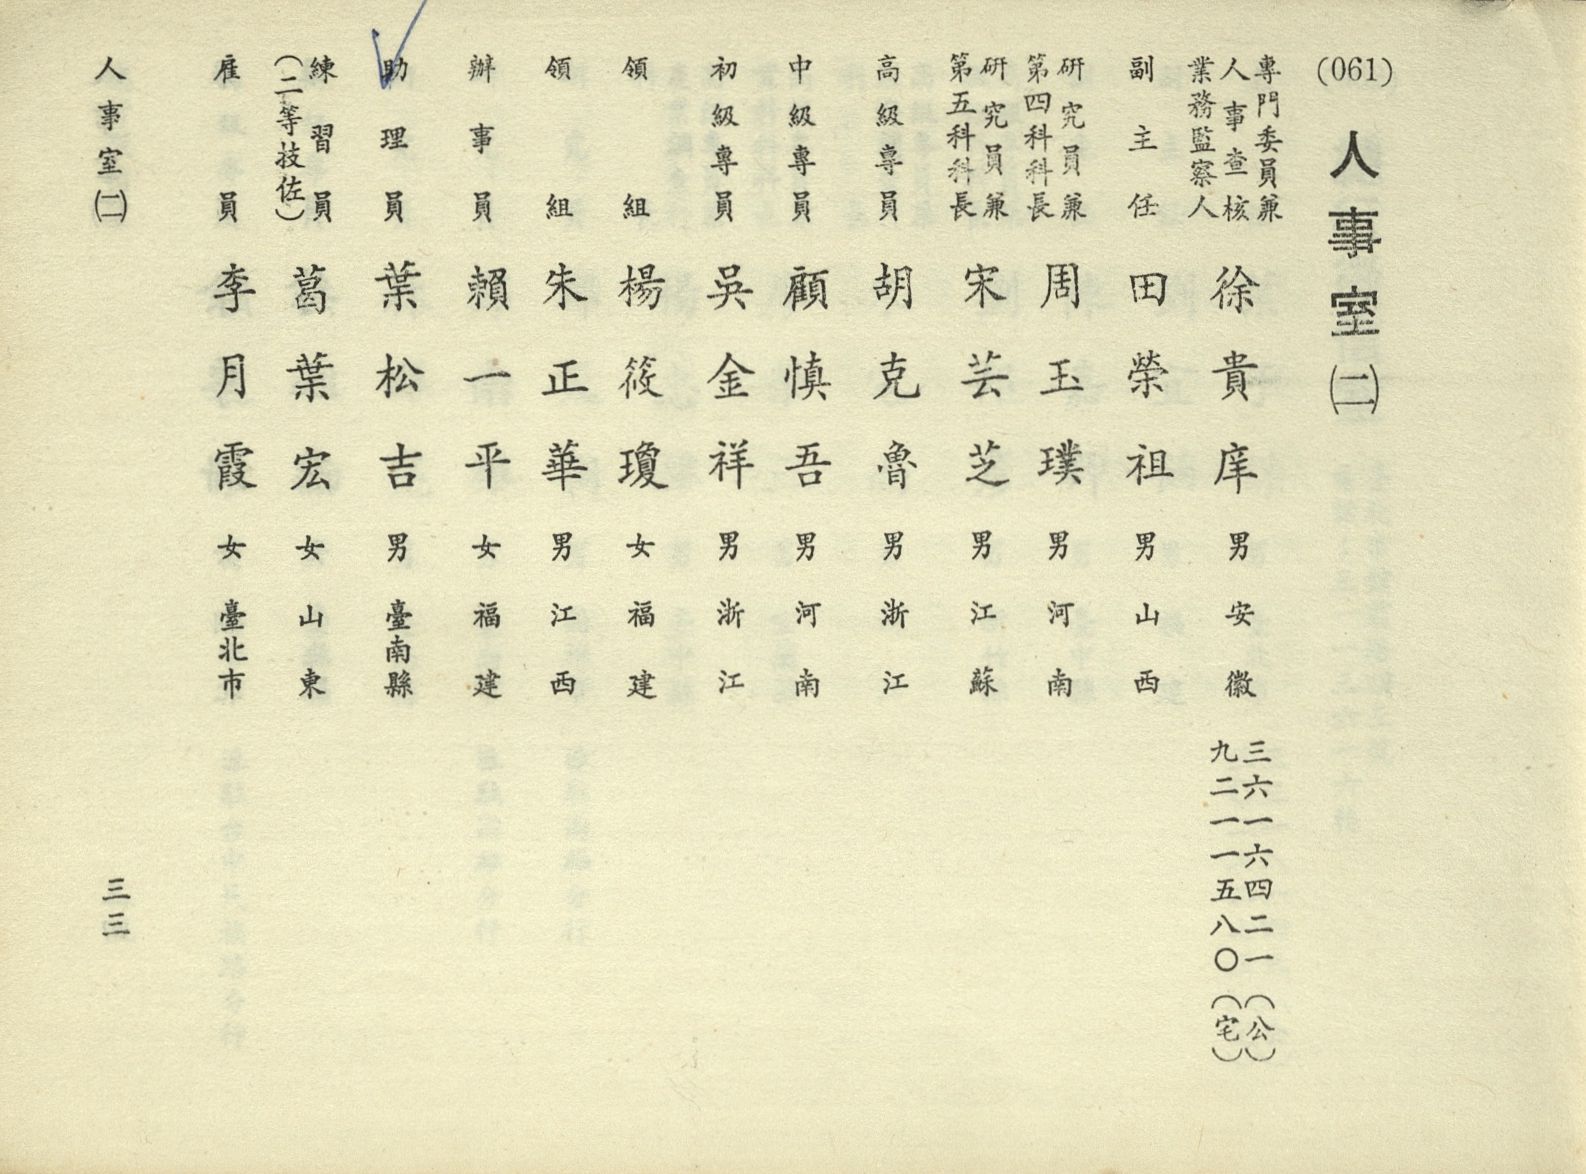 (061) 人事室㈡
專門委員兼
人事查核
業務監察人 徐貴庠 男 安徽 三六一六四二一(公)
九二一一五八〇(宅)
副主任 田榮祖 男 山西
研究員兼
第四科科長 周玉璞 男 河南
研究員兼
第五科科長 宋芸芝 男 江蘇
高級專員 胡克魯 男 浙江
中級專員 顧慎吾 男 河南
初級專員 吳金祥 男 浙江
領組 楊筱瓊 女 福建
領組 朱正華 男 江西
辦事員 賴一平 女 福建
助理員 葉松吉 男 臺南縣
練習員
(二等技佐) 葛葉宏 女 山東
雇員 李月霞 女 臺北市
人事室㈡ 三三